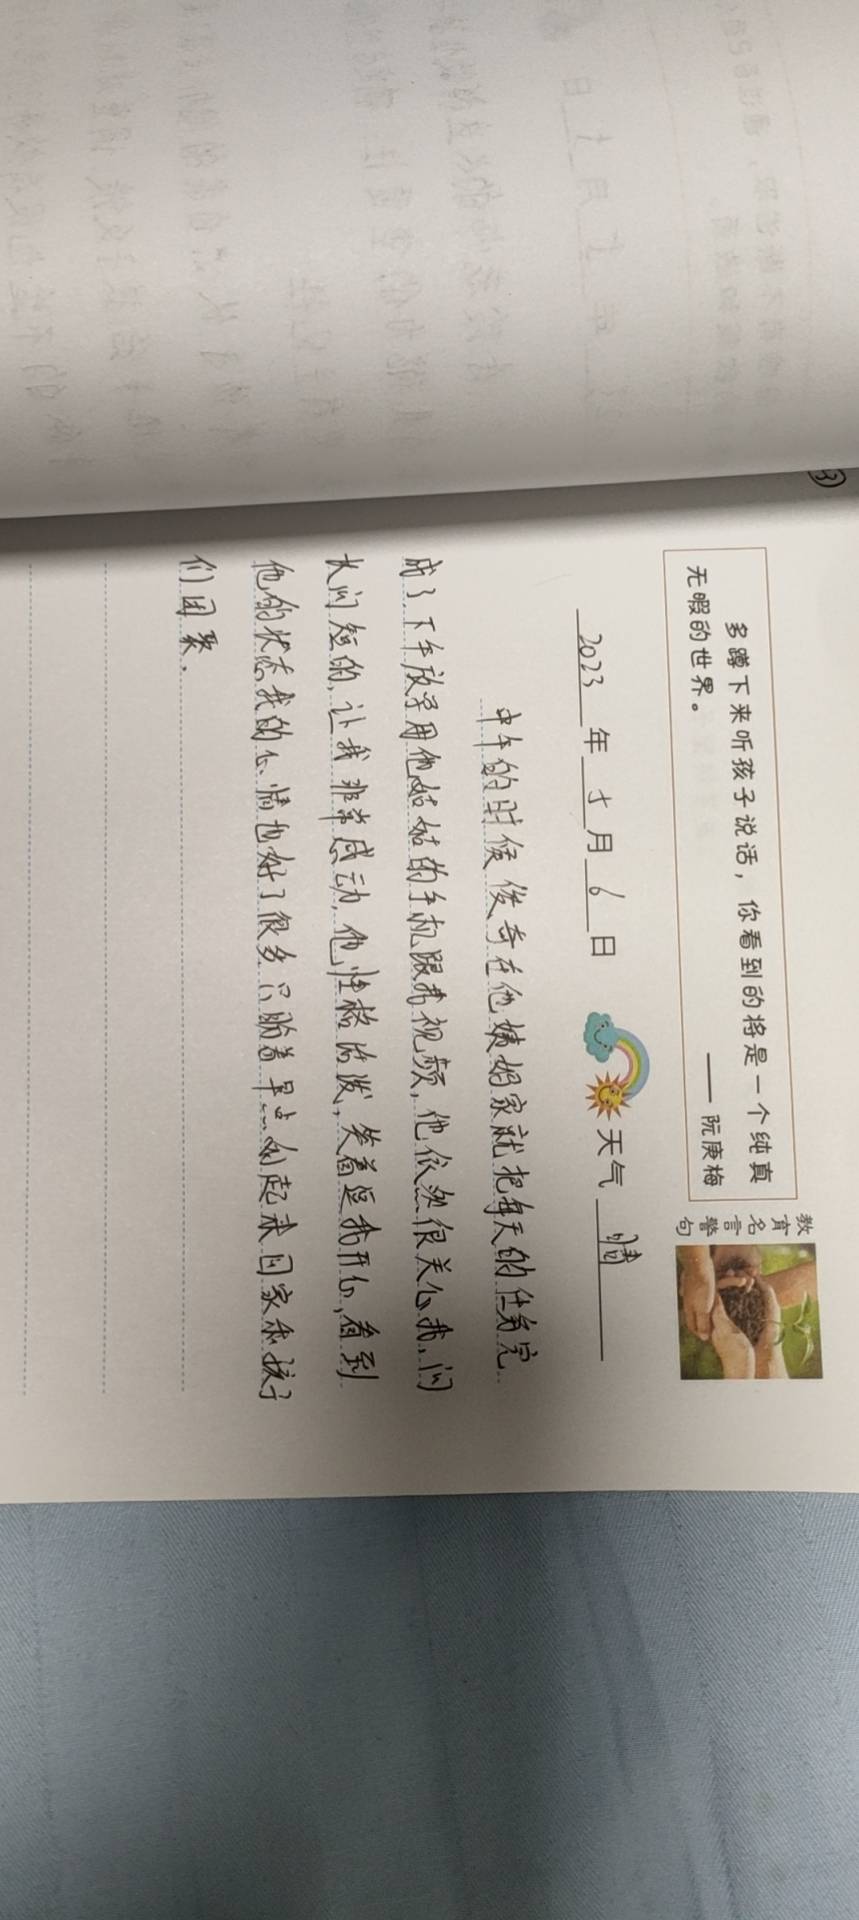 ③
教育名言警句
多蹲下来听孩子说话，你看到的将是一个纯真
无暇的世界。
—— 阮庚梅
2023年 5月 6日 天气 晴
中午的时候俊奇在他姨姐家就把每天的任务完
成了.下午放学用他姑姑的手机跟我视频,他依然很关心我,问
长问短的,让我非常感动,他性格活泼,笑着逗我开心,看到
他的状态我的心情也好了很多只盼着早点好起来回家和孩子
们团聚.